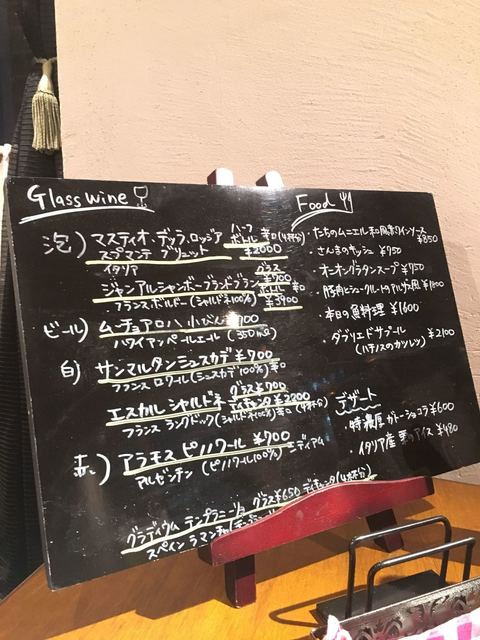 Glass wine
泡) マスティオ・デッラ・ロッジア ハーフボトル 辛口(4杯分)
スプマンテ ブリュット ¥2000
イタリア
ジャン アルシャンボー ブランドブラン グラス ¥700 ボトル 辛口 ¥3900
フランス.ボルドー(シャルドネ100%)
ビール) ムーチョアロハ 小びん ¥900
ハワイアンペールエール (350ml)
白) サンマルタン ミュスカデ ¥700
フランス ロワール (ミュスカデ100%) 辛口
エスカル シャルドネ グラス ¥700 デキャンタ ¥2200
フランス ラングドック (シャルドネ100%) 辛口 (4杯分)
赤) アラモス ピノノワール ¥700
アルゼンチン (ピノノワール100%) ミディアム
グラディウム テンプラニージョ グラス ¥650 デキャンタ (4杯分)
スペイン ラ マンチャ
Food
・たちのムニエル 和風 インソース ¥850
・さんまのキッシュ ¥950
・オニオングラタンスープ ¥750
・豚肉とシュークルートのアルザス風 ¥1100
・本日の魚料理 ¥1600
・タブリエ ド サプール ¥2100
(ハチノスのカツレツ)
デザート
・特濃厚ガトーショコラ ¥600
・イタリア産 栗のアイス ¥480